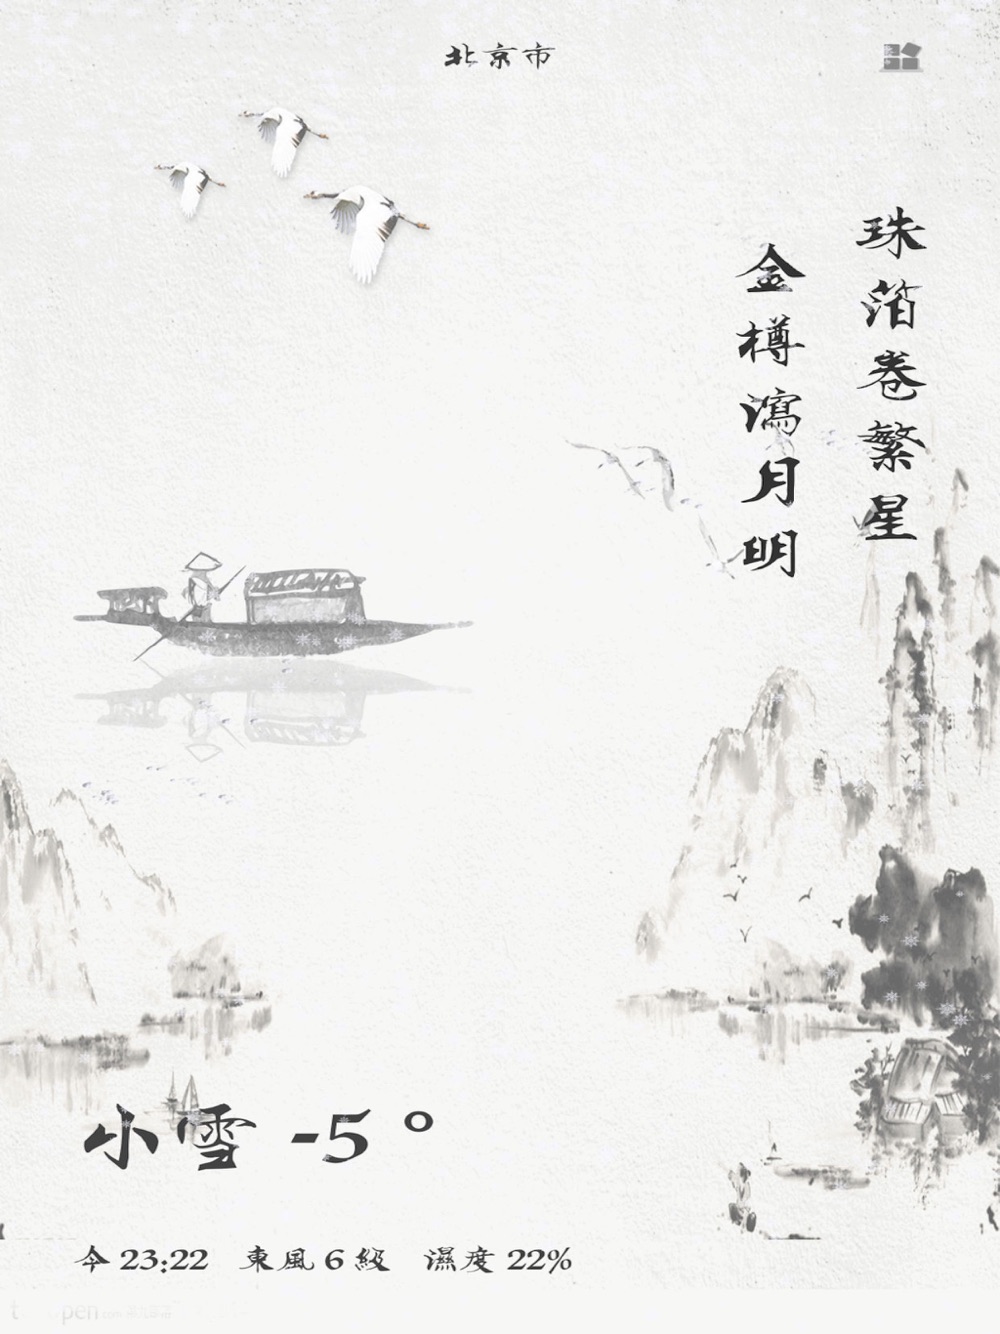 北京市
珠箔卷繁星
金樽瀉月明
小雪 -5°
今 23:22 東風 6 級 濕度 22%
pen